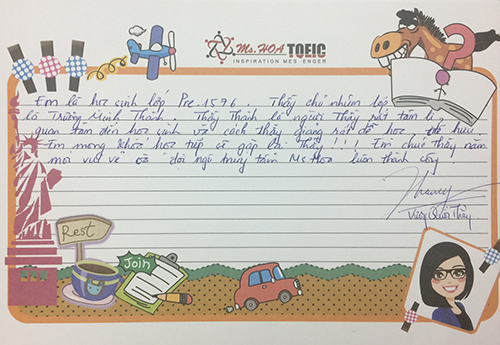 Ms.HOA TOEIC
INSPIRATION MESSENGER
Em là học sinh lớp Pre.1596. Thầy chủ nhiệm lớp
là Trương Minh Thành. Thầy Thành là người Thầy rất tâm lí
quan tâm đến học sinh và cách thầy giảng rất dễ học, dễ hiểu
Em mong khóa học tiếp sẽ gặp lại Thầy!!! Em chúc Thầy năm
mới vui vẻ và đội ngũ trung tâm Ms Hoa luôn thành công
Rest
Join